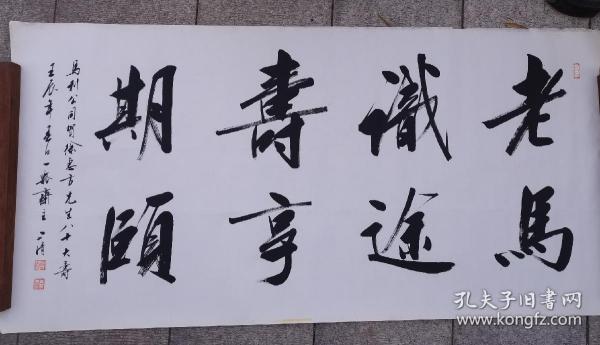 老馬
識途
壽享
期頤
馬利公司賀徐惠方先生八十大壽
壬辰年春日一
孔夫子旧书网
www.kongfz.com